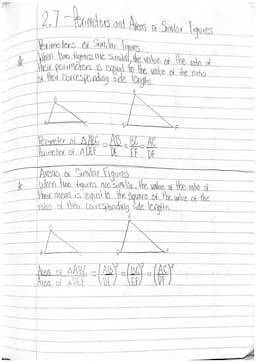 2.7 - Perimeters and Areas of Similar Figures
Perimeters of Similar Figures
* When two figures are similar, the value of the ratio of
their perimeters is equal to the value of the ratio
of their corresponding side lengths.
Perimeter of △ABC = AB = BC = AC
Perimeter of △DEF DE EF DF
Areas of Similar Figures
* When two figures are similar, the value of the ratio of
their areas is equal to the square of the value of the
ratio of their corresponding side lengths.
Area of △ABC = (AB)² = (BC)² = (AC)²
Area of △DEF (DE) (EF) (DF)